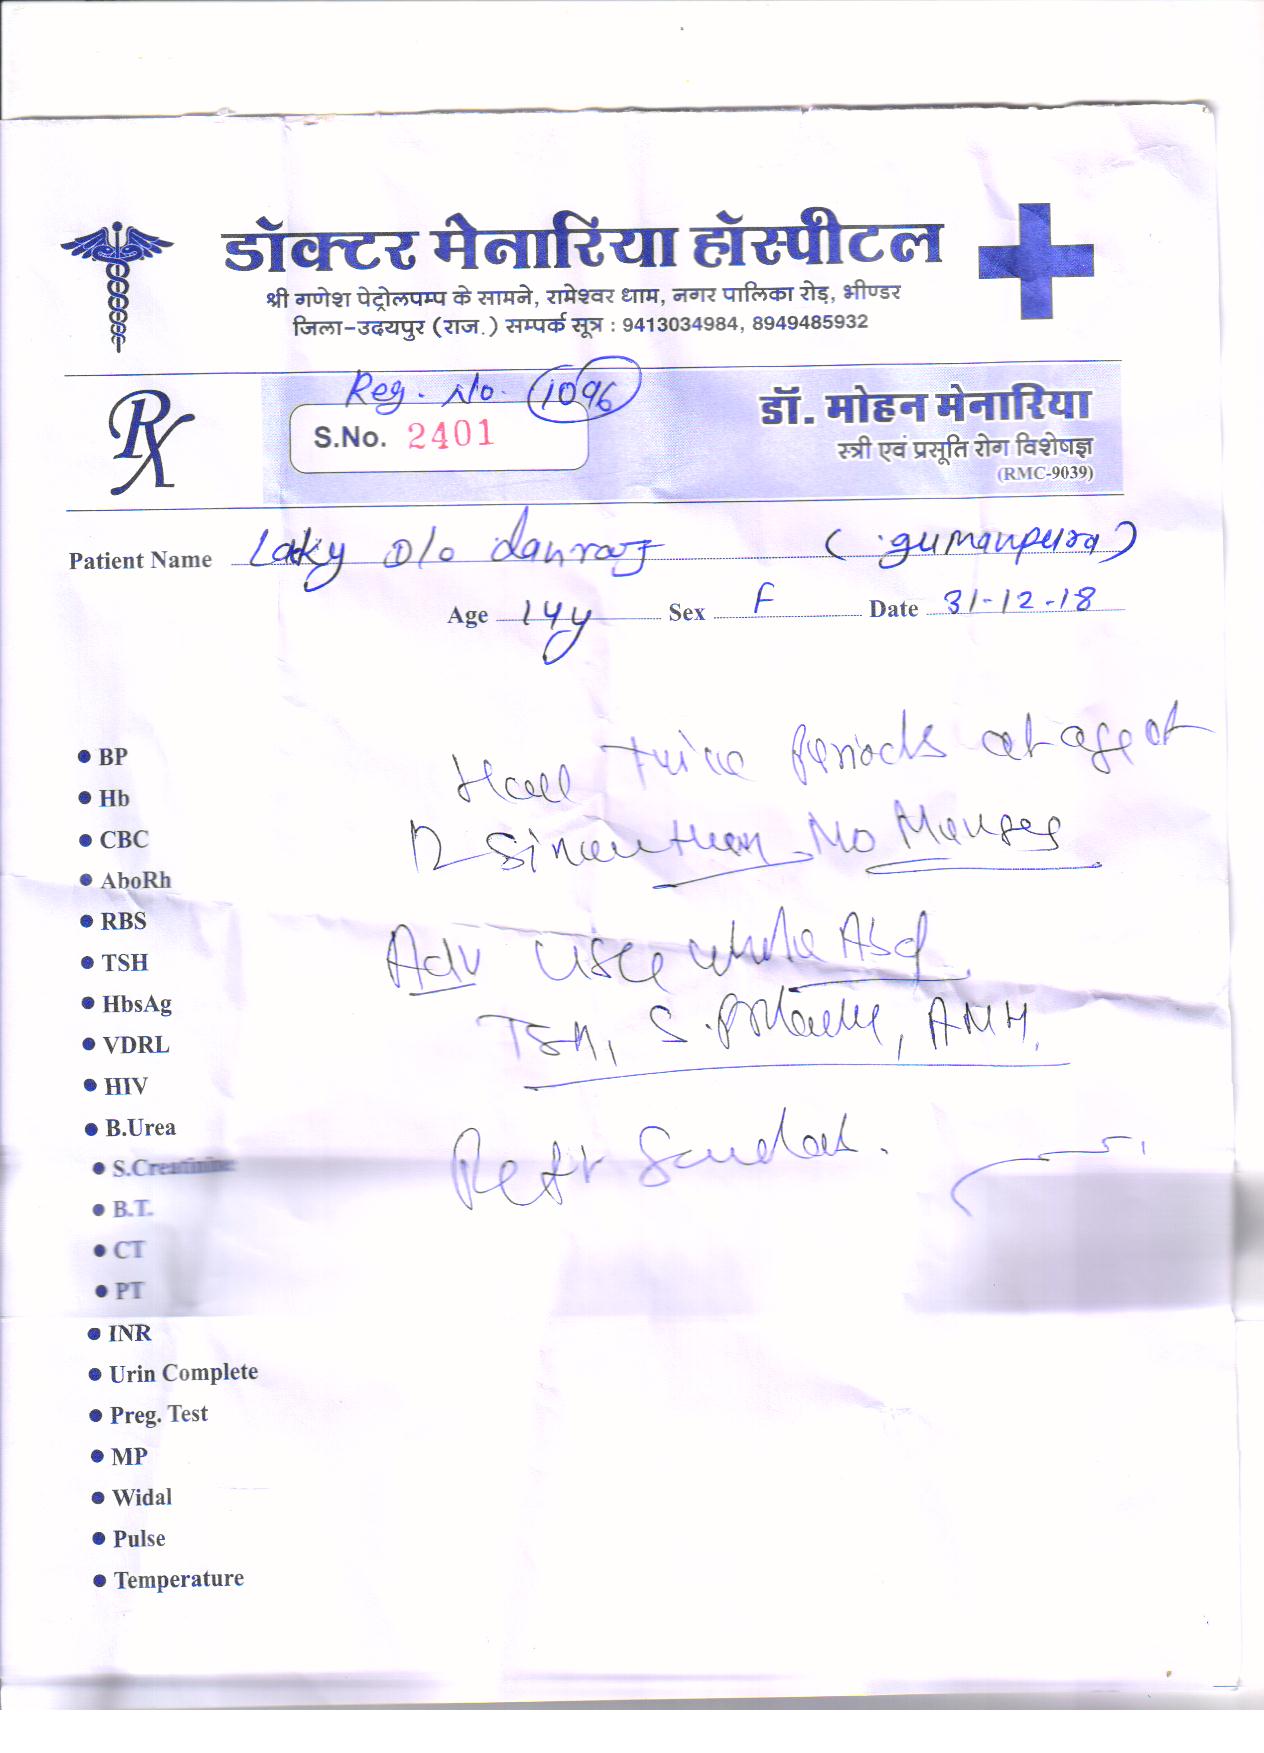 डॉक्टर मेनारिया हॉस्पीटल
श्री गणेश पेट्रोलपम्प के सामने, रामेश्वर धाम, नगर पालिका रोड़, भीण्डर
जिला-उदयपुर (राज.) सम्पर्क सूत्र : 9413034984, 8949485932
Reg. No. 1096
S.No. 2401
डॉ. मोहन मेनारिया
स्त्री एवं प्रसूति रोग विशेषज्ञ
(RMC-9039)
Patient Name Laky D/o danraj (gumanpura)
Age 14y Sex F Date 31-12-18
Had twice Periods at age of
12 Since then No Menses
Adv USG whole Abd.
TSH, S. Prolactin, AMH.
• BP
• Hb
• CBC
• AboRh
• RBS
• TSH
• HbsAg
• VDRL
• HIV
• B.Urea
• S.Creatinine
• B.T.
• CT
• PT
• INR
• Urin Complete
• Preg. Test
• MP
• Widal
• Pulse
• Temperature